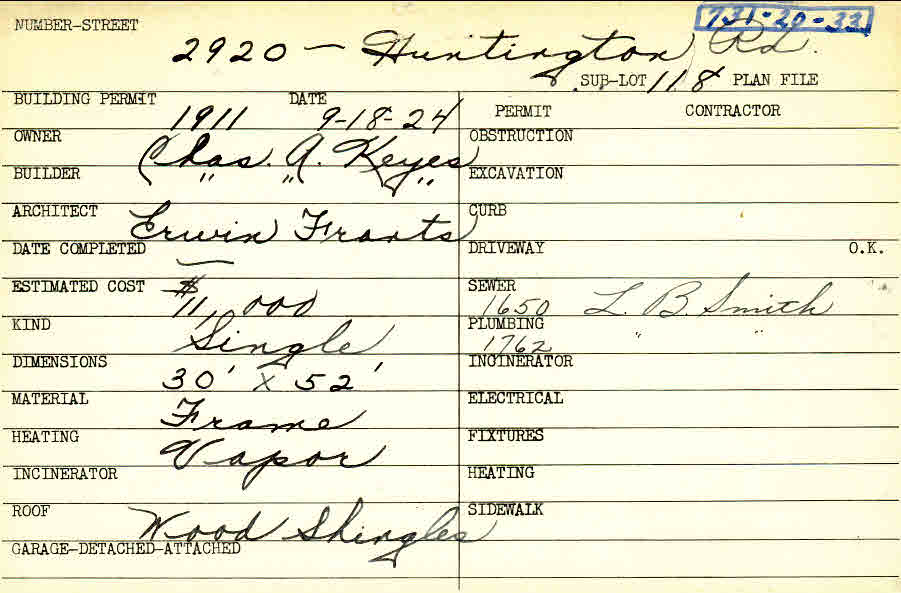 731-20-33
NUMBER-STREET
2920 - Huntington Rd.
SUB-LOT 118 PLAN FILE
BUILDING PERMIT 1911 DATE 9-18-24
PERMIT CONTRACTOR
OWNER Chas. A. Keyes
OBSTRUCTION
BUILDER " " "
EXCAVATION
ARCHITECT Erwin Frants
CURB
DATE COMPLETED —
DRIVEWAY O.K.
ESTIMATED COST $11,000
SEWER 1650 L. B. Smith
KIND Single
PLUMBING 1762 " "
DIMENSIONS 30' x 52'
INCINERATOR
MATERIAL Frame
ELECTRICAL
HEATING Vapor
FIXTURES
INCINERATOR
HEATING
ROOF Wood Shingles
SIDEWALK
GARAGE-DETACHED-ATTACHED